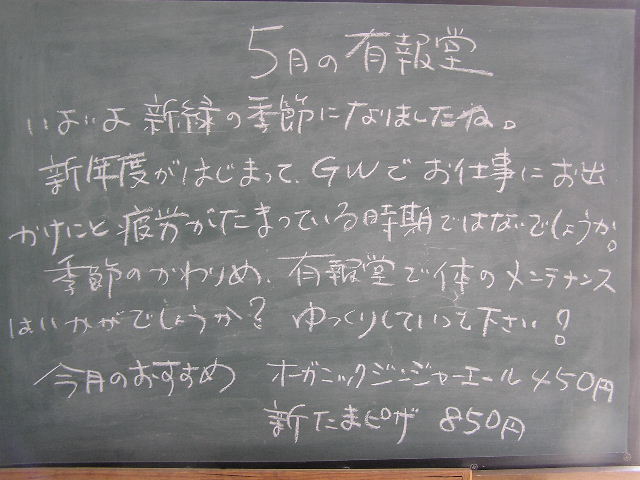 5月の有報堂
いよいよ新緑の季節になりましたね。
新年度がはじまって、GWでお仕事にお出
かけにと疲労がたまっている時期ではないでしょうか。
季節のかわりめ、有報堂で体のメンテナンス
はいかがでしょうか? ゆっくりしていって下さい?
今月のおすすめ オーガニックジンジャーエール 450円
新たまピザ 850円